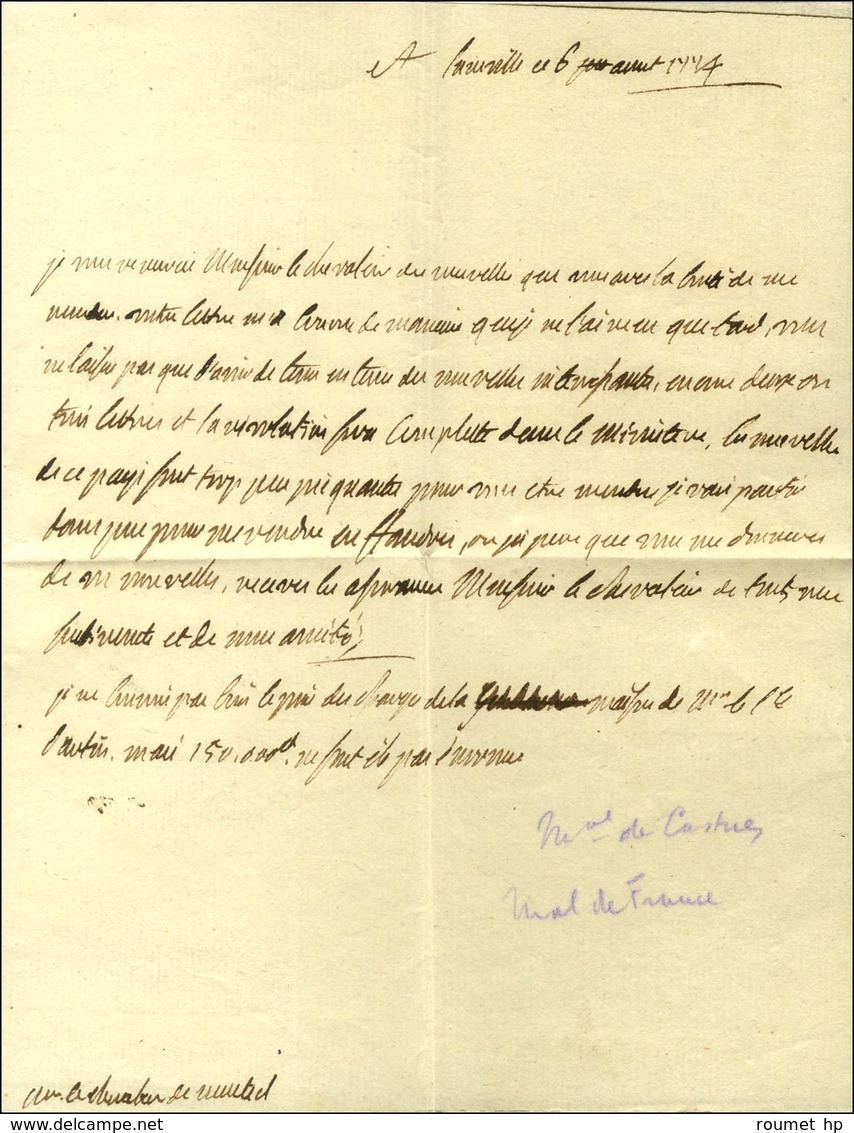 A Luneville ce 6 aout 1774
je vous remercie Monsieur le chevalier des nouvelles que vous aves la bonté de me
mander. votre lettre m'a de maniere que je ne l'ai recu que tard, vous
ne laissés pas que d'avoir de tems en tems des nouvelles interessantes, encore deux ou
trois lettres et la revolution sera complette dans le ministere, les nouvelles
de ce pays sont trop peu piquantes pour vous etre mandes je vais partir
dans peu pour me rendre en flandres, ou j'espere que vous me donneres
de vos nouvelles, receves les assurances Monsieur le chevalier de tous mes
sentiments et de mon amitié
je ne connois pas bien le prix des charges de la maison de Mgr le Cte
d'artois. mais 150.000# ne sont ils pas énormes
Mal de Castries
Mal de France
Mr. le chevalier de monteil
www.roumet hp